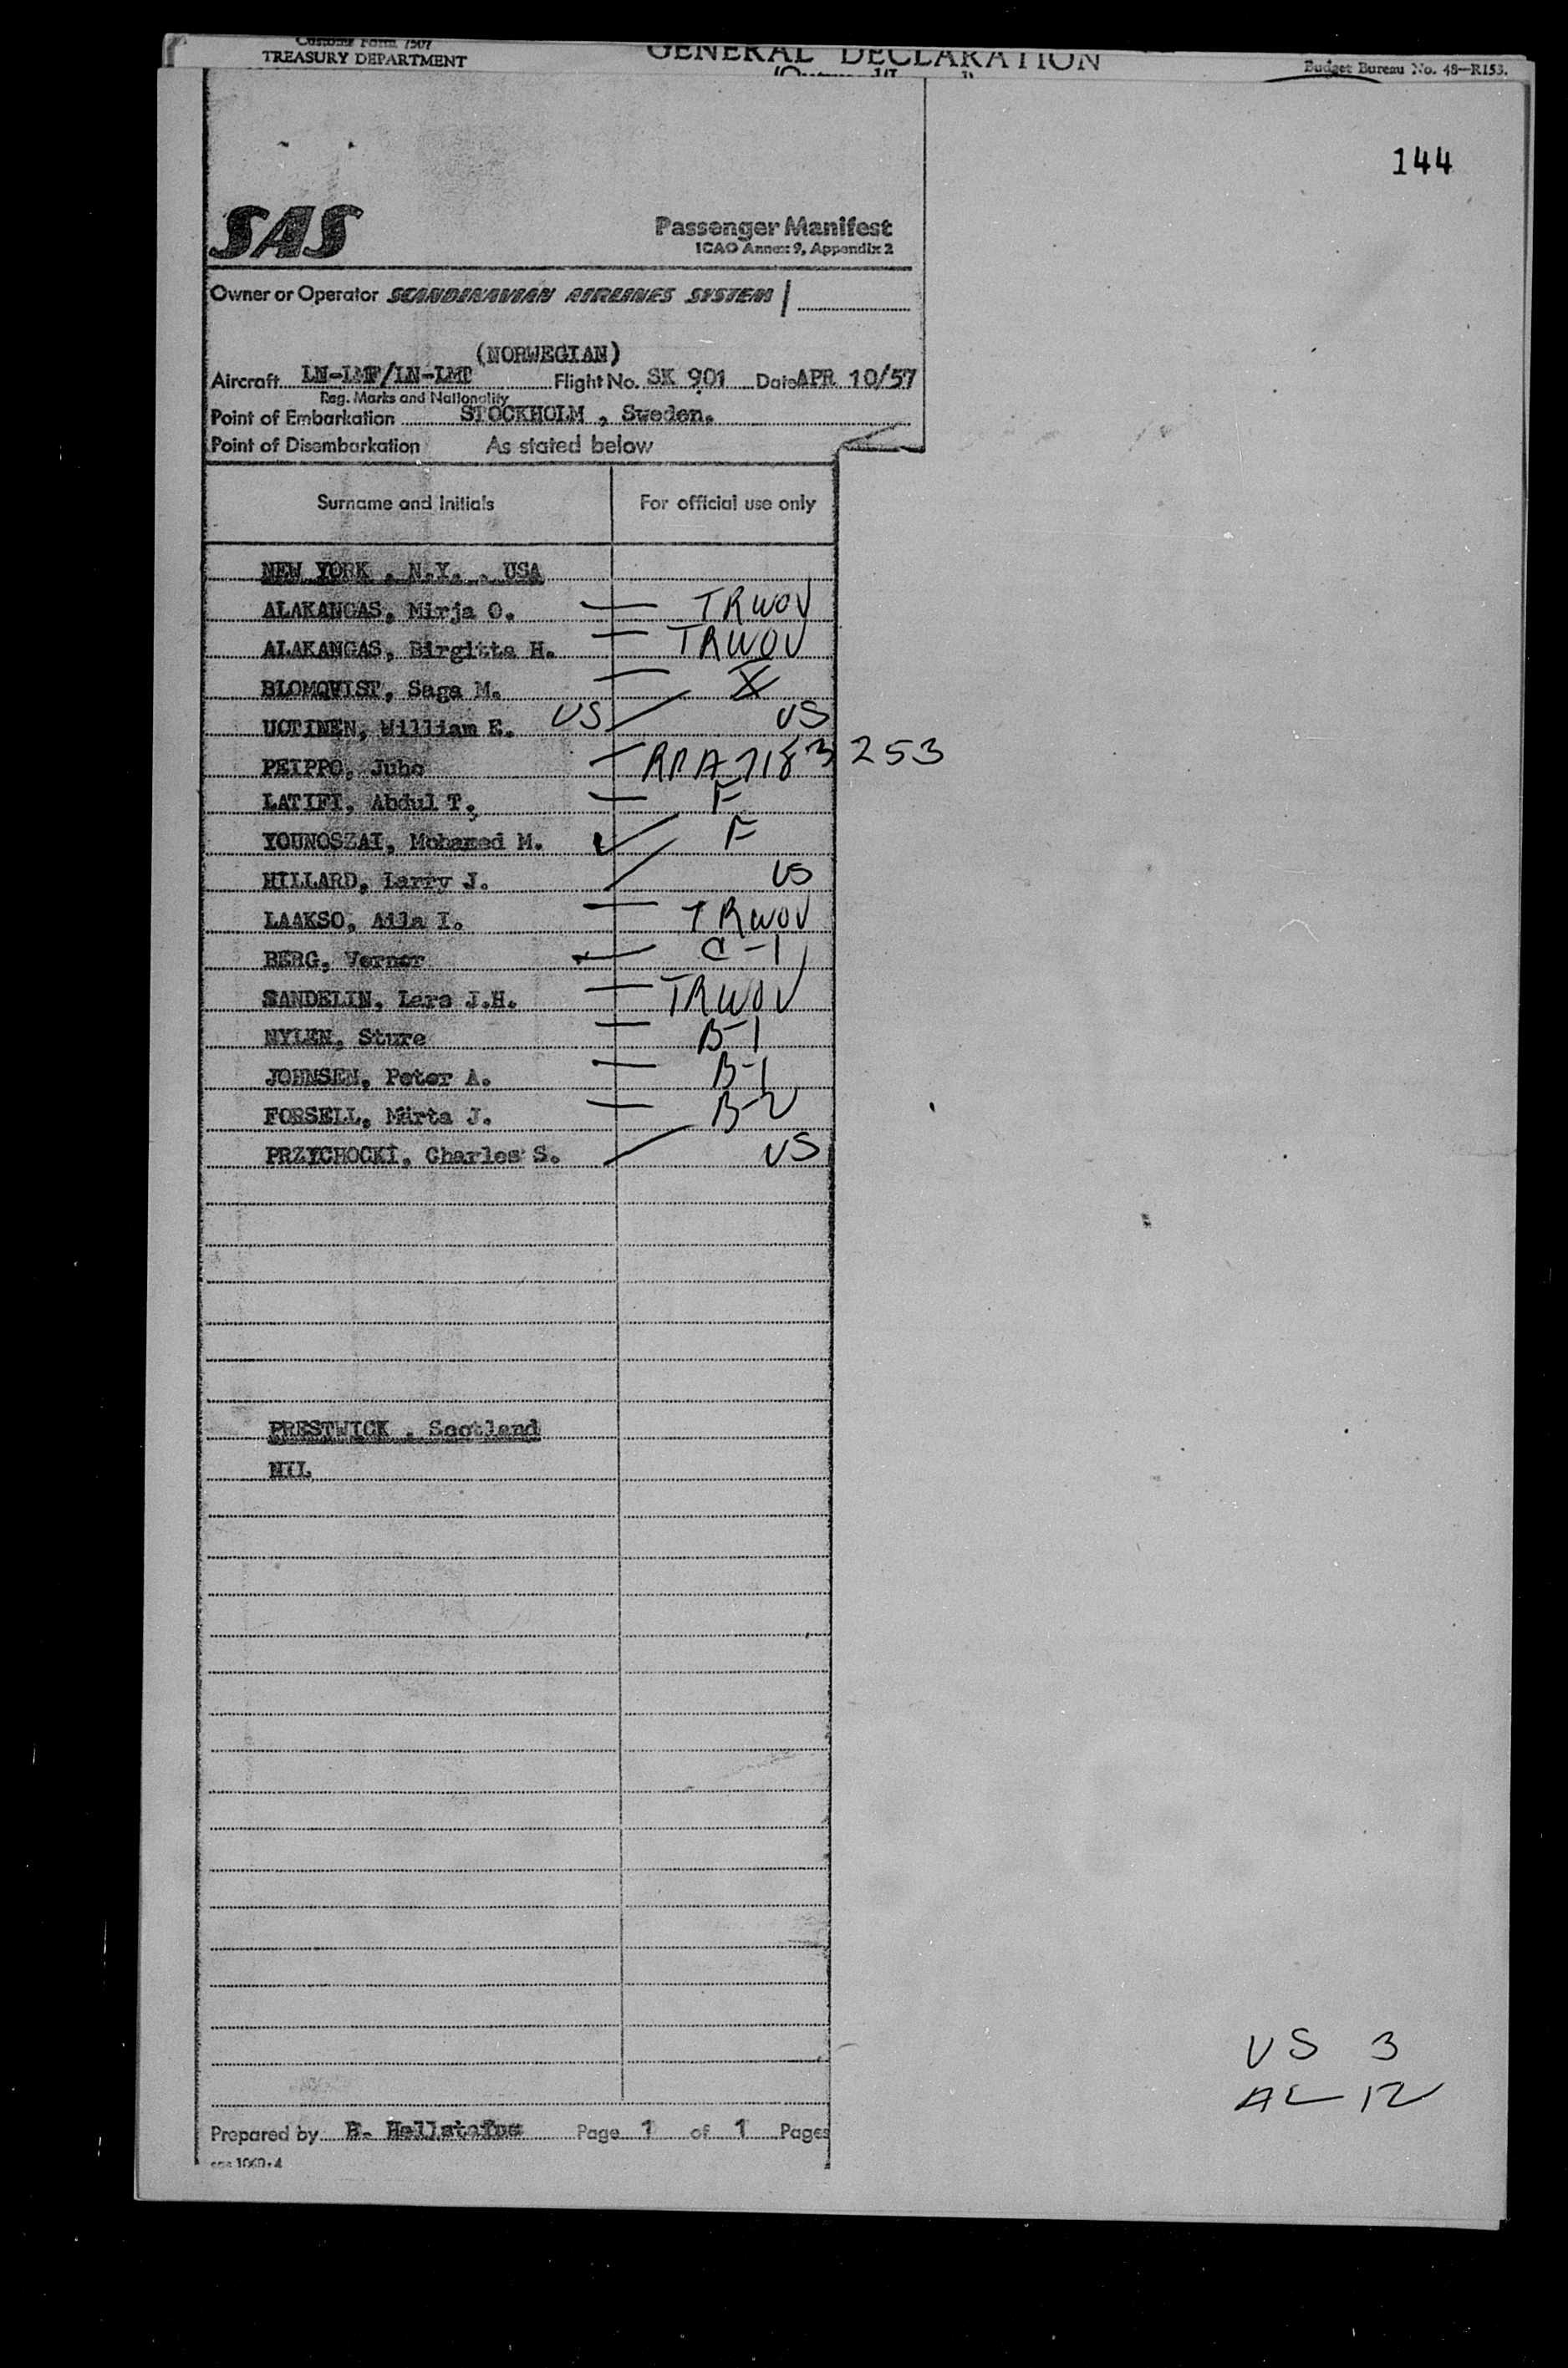 Customs Form 7507
TREASURY DEPARTMENT
GENERAL DECLARATION
Budget Bureau No. 48—R153.
144
SAS
Passenger Manifest
ICAO Annex 9, Appendix 2
Owner or Operator SCANDINAVIAN AIRLINES SYSTEM
(NORWEGIAN)
Aircraft LN-LMF/LN-LMT Flight No. SK 901 Date APR 10/57
Reg. Marks and Nationality
Point of Embarkation STOCKHOLM , Sweden.
Point of Disembarkation As stated below
Surname and initials For official use only
NEW YORK , N.Y. , USA
ALAKANGAS, Mirja O. TRWOV
ALAKANGAS, Birgitta H. TRWOV
BLOMQVIST, Saga M.
UOTINEN, William E. US US
PEIPPO, Juho 253
LATIFI, Abdul T. F
YOUNOSZAI, Mohamed M. F
HILLARD, Larry J. US
LAAKSO, Aila I. TRWOV
BERG, Verner C-1
SANDELIN, Lars J.H. TRWOV
NYLEN, Sture B-1
JOHNSEN, Peter A. B-1
FORSELL, Märta J. B-2
PRZYCHOCKI, Charles S. US
PRESTWICK , Scotland
NIL
US 3
AL 12
Prepared by B. Page 1 of 1 Pages
sas 1060-4